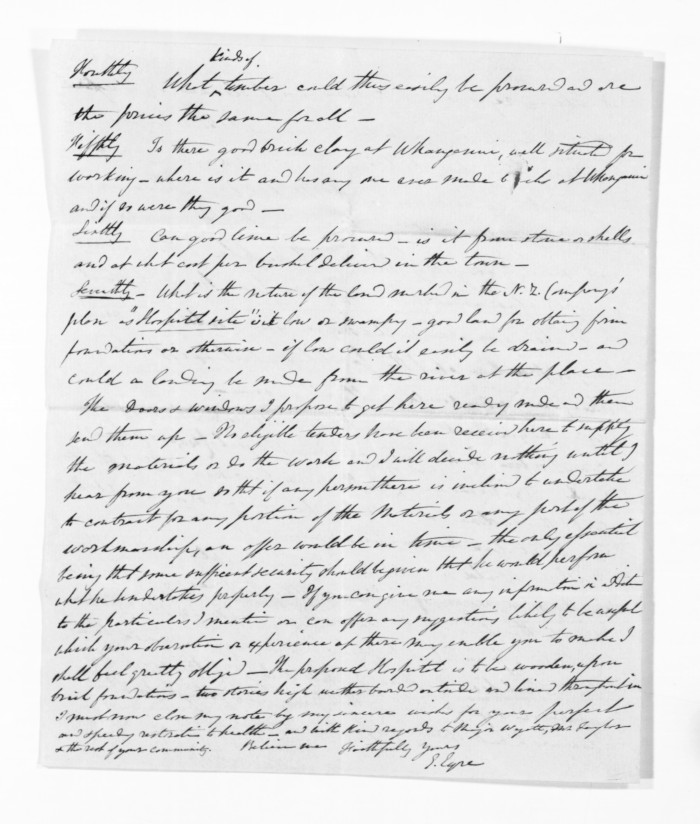 kinds of
Fourthly What ^ timber could thus easily be procured and are
the prices the same for all —
Fifthly Is there good brick clay at Whanganui, well situated for
working — where is it and has any one ever made bricks at Whanganui
and if so were they good —
Sixthly Can good lime be procured — is it from stone or shells
and at what cost per bushel delivered in the town —
Seventhly — What is the nature of the land marked in the N.Z. Company's
plan as "Hospital site" is it low or swampy — good land for obtaining firm
foundations or otherwise — if low could it easily be drained — and
could a landing be made from the river at the place —
The Doors & windows I propose to get here ready made and then
send them up — No eligible tenders have been received here to supply
the materials or do the work and I will decide nothing until I
hear from you so that if any person there is inclined to undertake
to contract for any portion of the Materials or any part of the
workmanship, an offer would be in time — the only essential
being that some sufficient security should be given that he would perform
what he undertakes properly — If you can give me any information in addition
to the particulars I mention or can offer any suggestions likely to be useful
which your observation or experience up there may enable you to make I
shall feel greatly obliged — The proposed Hospital is to be wooden, upon
brick foundations — two stories high weather boarded outside and lined throughout in
I must now close my note by my sincere wishes for your perfect
and speedy restoration to health — and with kind regards to Major Wyatt, Mr Taylor
& the rest of your community. Believe me Faithfully yours
E. Eyre